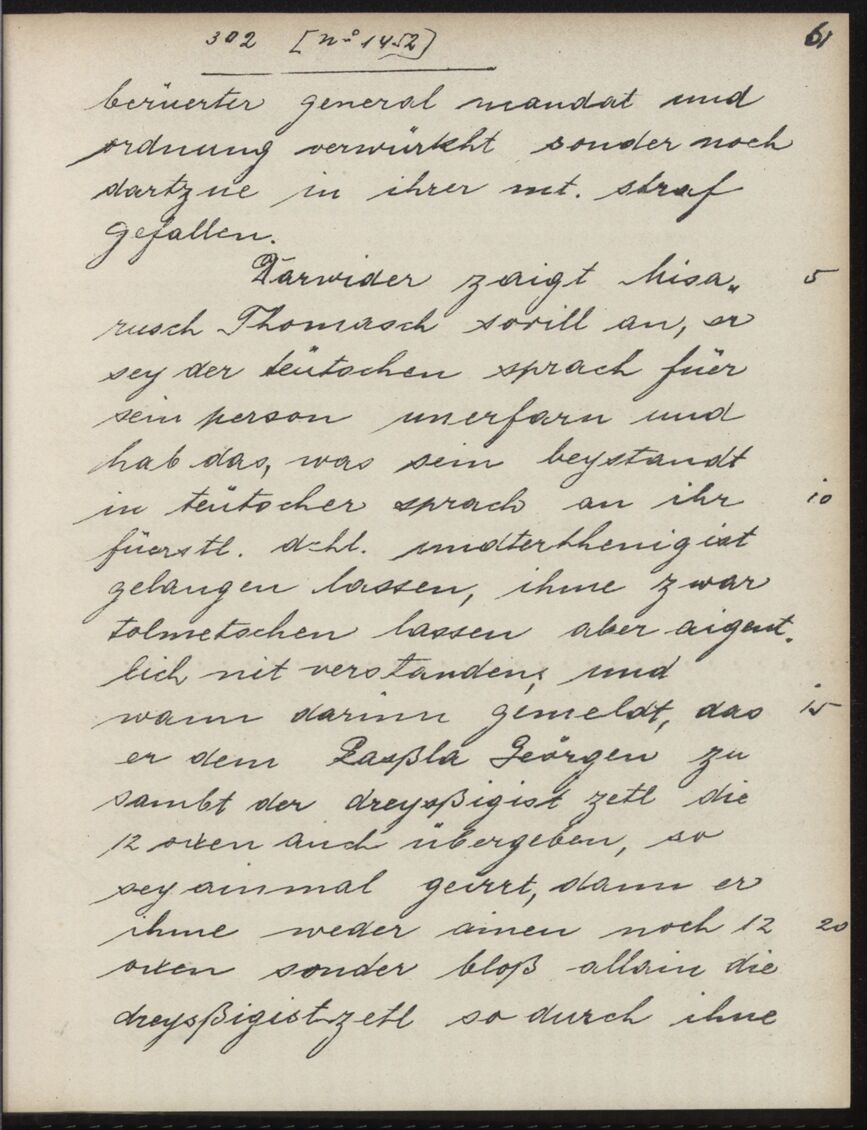 302 [nº 1452] 61
berüerter general mandat und
ordnung verwürkht sonder noch
dartzue in ihrer mt. straf
gefallen.
Darwider zaigt Misa„ 5
rusch Thomasch sovill an, er
sey der teütschen sprach füer
sein person unerfarn und
hab das, was sein beystandt
in teütscher sprach an ihr 10
füerstl. dchl. undterthenigist
gelangen lassen, ihme zwar
tolmetschen lassen aber aigent„
lich nit verstanden; und
wann darinn gemeldt, das 15
er dem Raßla Geörgen zu
sambt der dreyßigist zetl die
12 oxen auch übergeben, so
sey ainmal geirrt, dann er
ihme weder ainen noch 12 20
oxen sonder bloß allain die
dreyßigistzetl so durch ihne